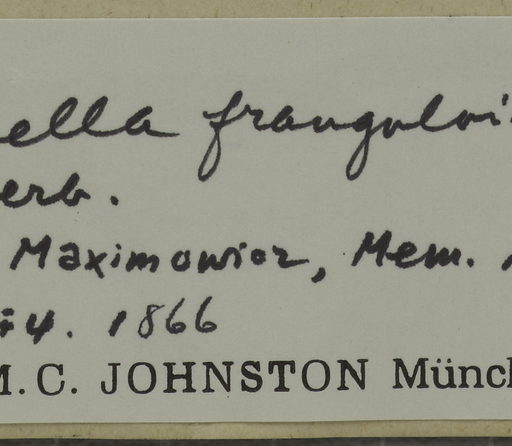 ella franguloi
erb.
Maximowicz, Mem.
4. 1866
M.C. JOHNSTON Münch